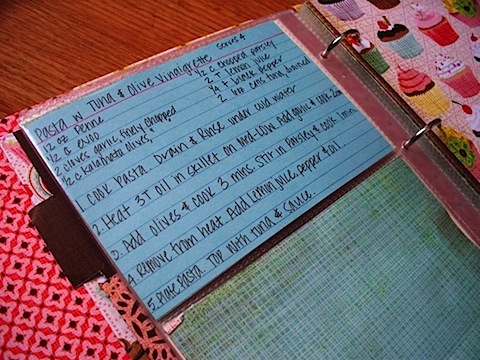 Pasta w Tuna & Olive Vinaigrette
Serves 4
12 oz Penne
1/2 C EVOO
2 cloves garlic, finely chopped
1/2 C kalamata olives, "
1/2 C chopped parsley
2 T lemon juice
1/4 t black pepper
2 6oz cans tuna, drained
1. Cook Pasta. Drain & Rinse under cold water
2. Heat 3T oil in skillet on med-low. Add garlic & cook 2min
3. Add olives & cook 3 mins. Stir in Parsley & cook 1 min.
4. Remove from heat. Add lemon juice, pepper & oil.
5. Plate Pasta. Top with tuna & sauce.